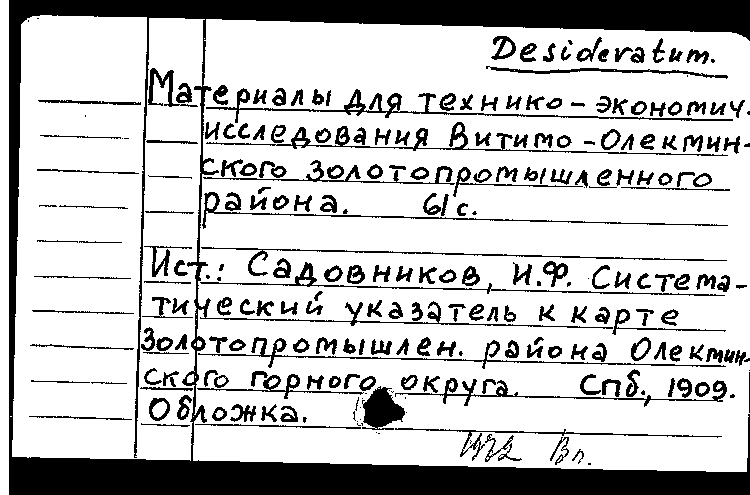 Desideratum.
Материалы для технико-экономич.
исследования Витимо-Олекмин-
ского золотопромышленного
района. 61 с.
Ист.: Садовников, И.Ф. Система-
тический указатель к карте
Золотопромышлен. района Олекмин-
ского горного округа. Спб., 1909.
Обложка.
1972 Вп.